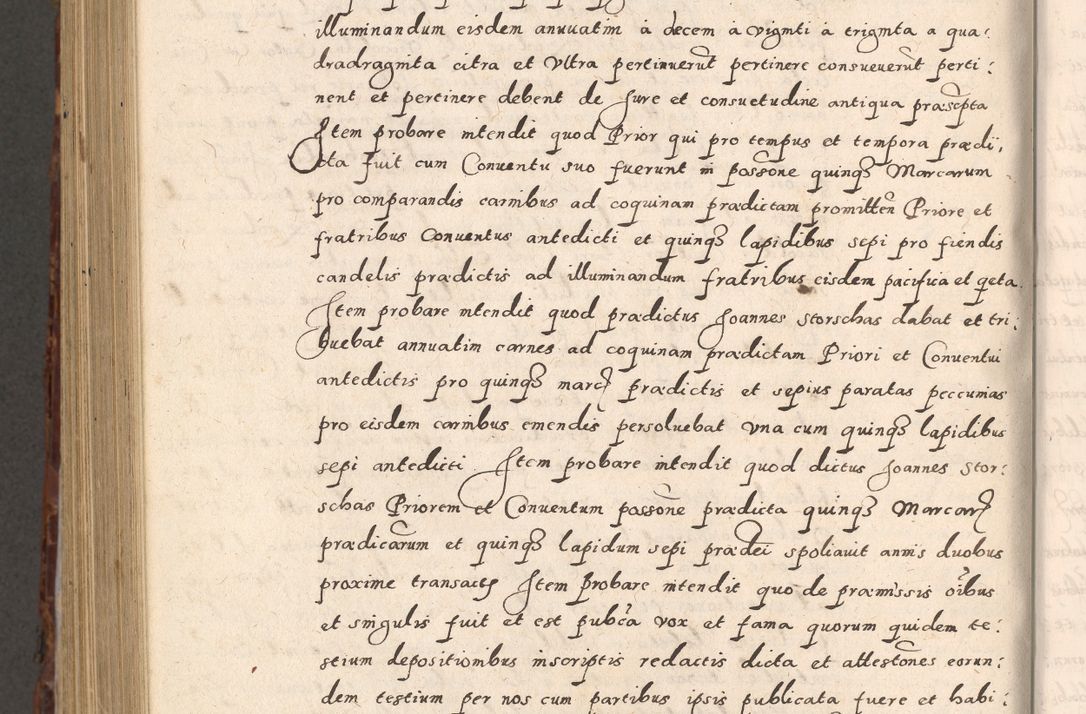 illuminandum eisdem annuatim à decem à viginti à triginta a qua:
dradraginta citra et Vltra pertinuerũt pertinere consueuerũt perti:
nent et pertinere debent de Jure et consuetudine antiqua præscpta
Item probare intendit quod Prior qui pro tempus et tempora prædi:
cta fuit cum Conuentu suo fuerunt in possone quinqȝ Marcarum
pro comparandis carnibus ad coquinam prædictam promitten Priore et
fratribus Conuentus antedicti et quinqȝ lapidibus sepi pro fiendis
candelis prædictis ad illuminandum fratribus eisdem pacifica et qeta.
Item probare intendit quod prædictus Joannes Storschas dabat et tri:
buebat annuatim carnes ad coquinam prædictam Priori et Conuentui
antedictis pro quinqȝ marcꝭ prædictis et sepius paratas peccunias
pro eisdem carnibus emendis persoluebat vna cum quinqȝ lapidibus
sepi antedicti Item probare intendit quod dictus Joannes Stor:
schas Priorem et Conuentum possone prædicta quinqȝ Marcarꝭ
prædicarum et quinqȝ lapidum sepi prædei spoliauit annis duobus
proxime transactꝭ Item probare intendit quo de præmissis oibus
et singulis fuit et est pubca vox et fama quorum quidem te:
stium depositionibus inscriptis redactis dicta et attestones eorun:
dem testium per nos cum partibus ipsis publicata fuere et habi: